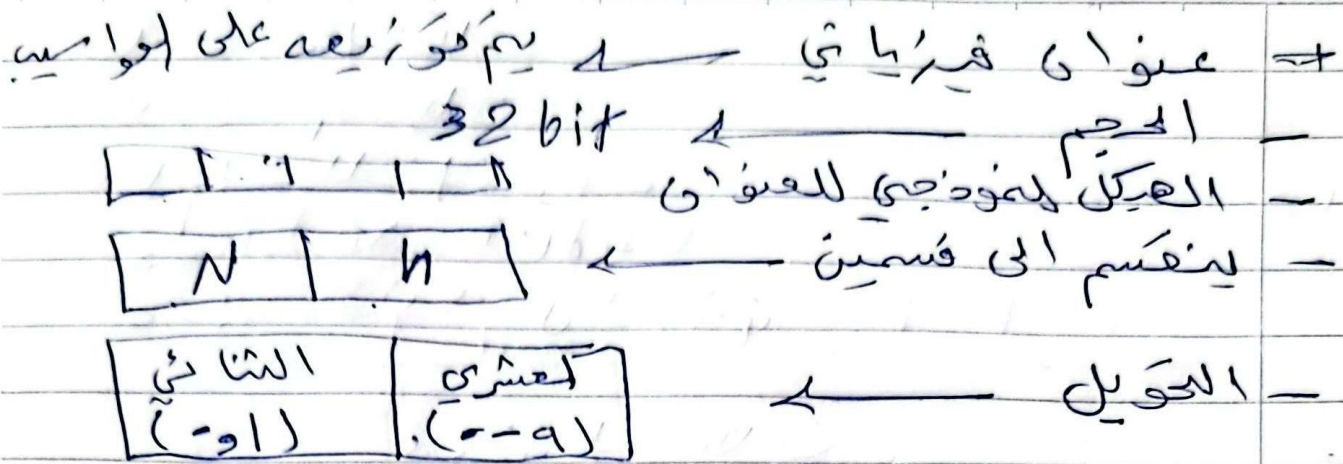 + عنوان فيزيائي ← يتم توزيعه على الحواسيب
- الحجم ← 32 bit
- الهيكل النموذجي للعنوان
- ينقسم الى قسمين ← N H
- التحويل ← الثنائي العشري
(0 و 1) (9 -- 0)